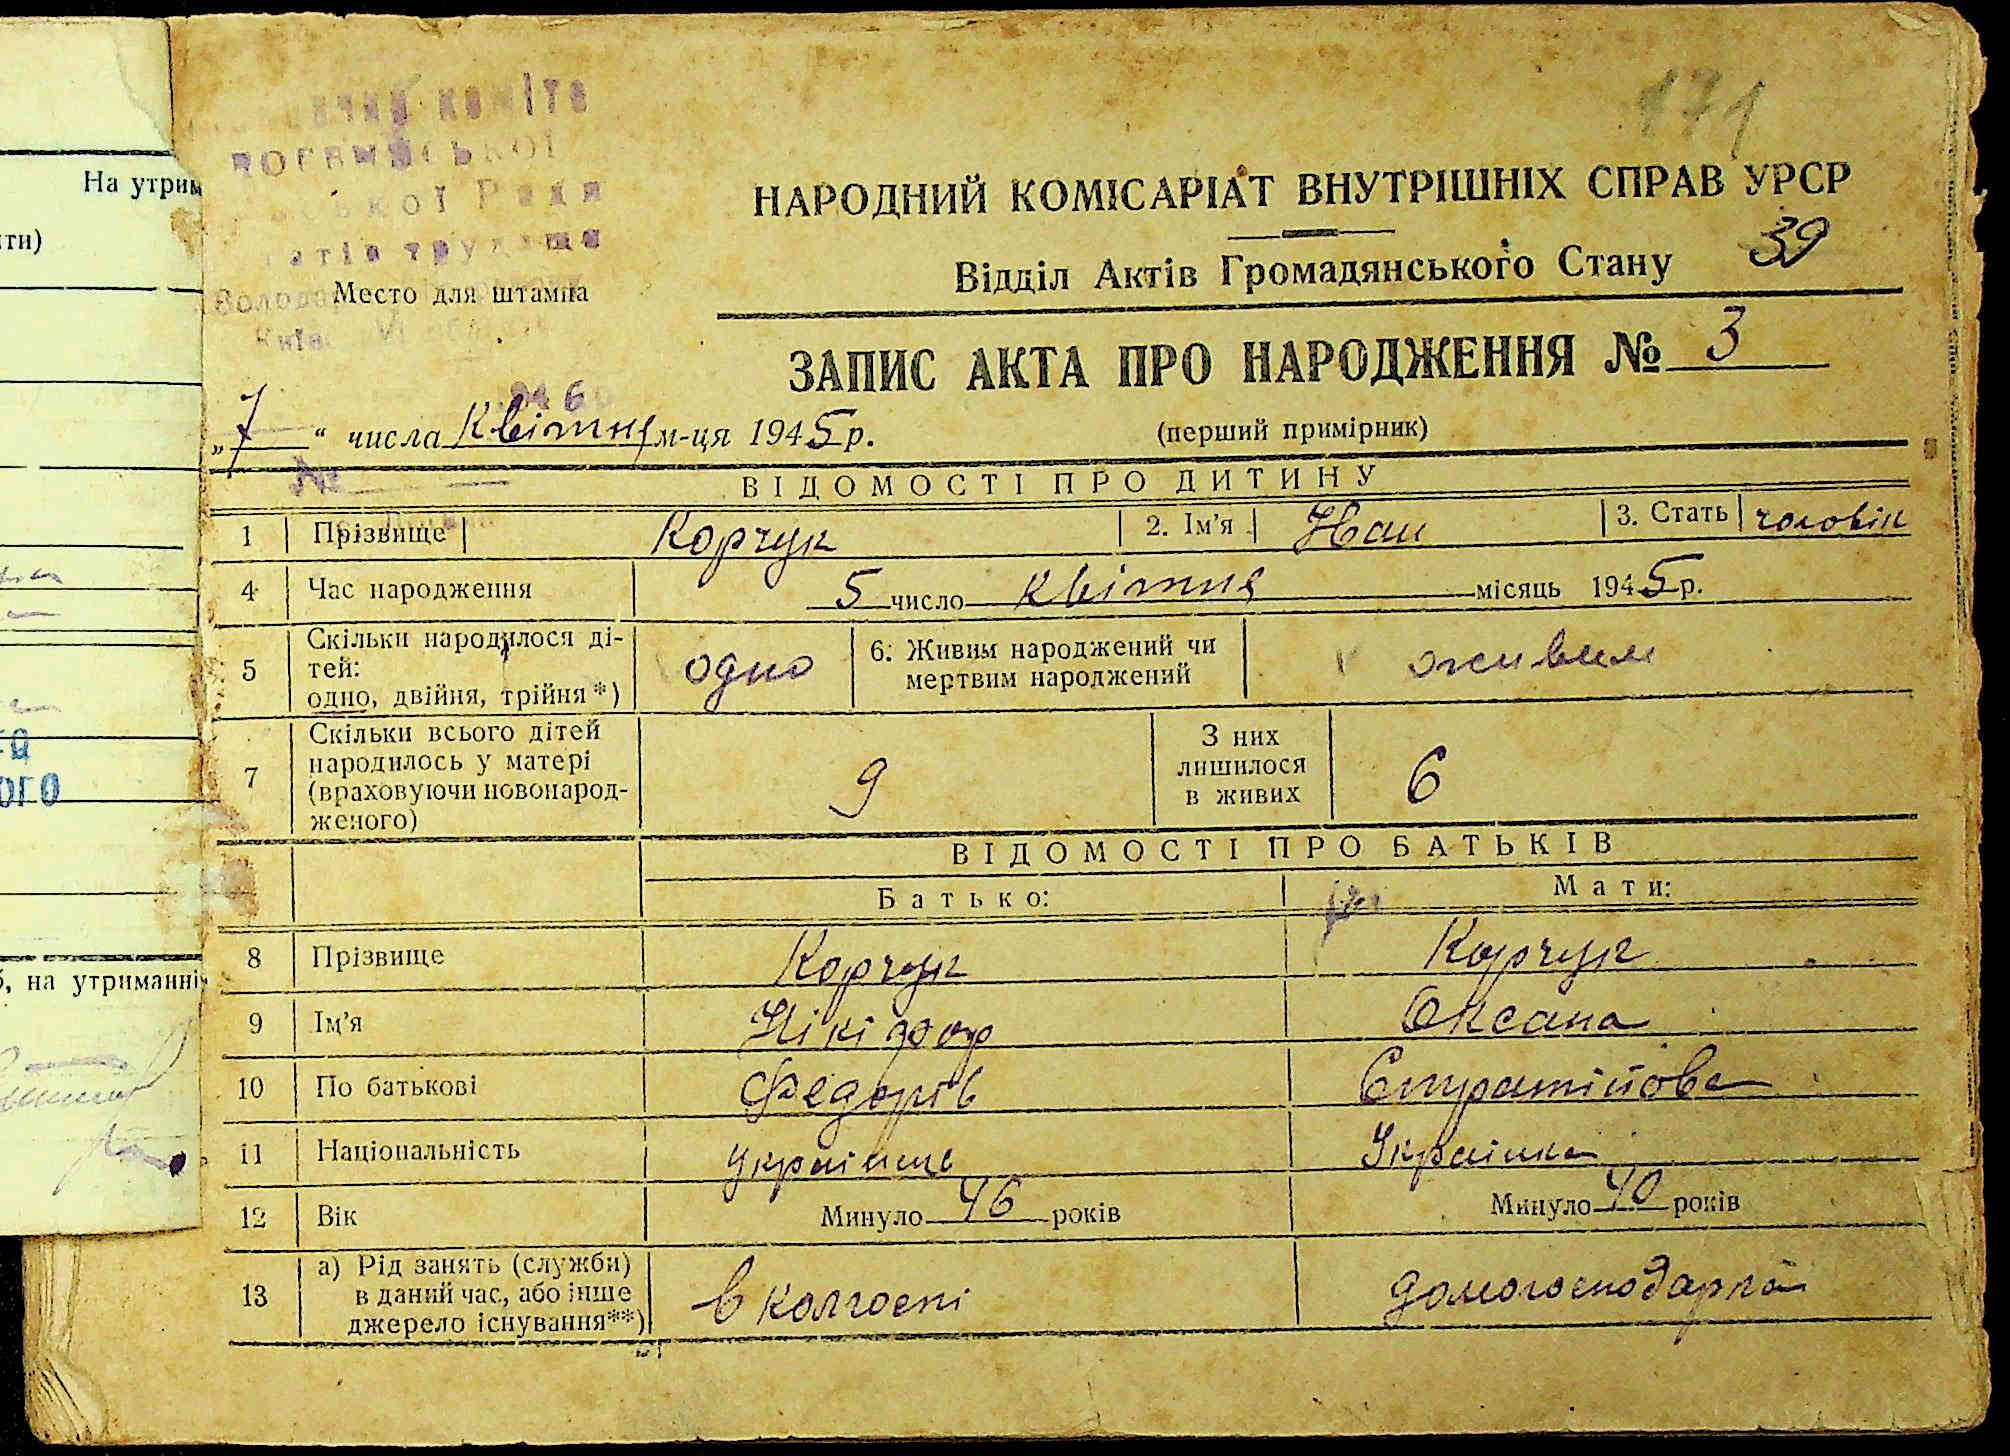 171
НАРОДНИЙ КОМІСАРІАТ ВНУТРІШНІХ СПРАВ УРСР
Відділ Актів Громадянського Стану 39
Место для штампа
ЗАПИС АКТА ПРО НАРОДЖЕННЯ № 3
„7“ числа квітня м-ця 1945 р.
(перший примірник)
ВІДОМОСТІ ПРО ДИТИНУ
1 Прізвище Корчук 2. Ім'я Иван 3. Стать чоловік
4 Час народження 5 число квітня місяць 1945 р.
5 Скільки народилося ді-
тей:
одно, двійня, трійня*) одно 6. Живим народжений чи
мертвим народжений живим
7 Скільки всього дітей
народилось у матері
(враховуючи новонарод-
женого) 9 З них
лишилося
в живих 6
ВІДОМОСТІ ПРО БАТЬКІВ
Батько: Мати:
8 Прізвище Корчук Корчук
9 Ім'я Нікіфор Оксана
10 По батькові Федорів
11 Національність українець Українка
12 Вік Минуло 46 років Минуло 40 років
13 а) Рід занять (служби)
в даний час, або інше
джерело існування**) в колгоспі домогосподарка
На утрим
ти)
ОГО
, на утриманні